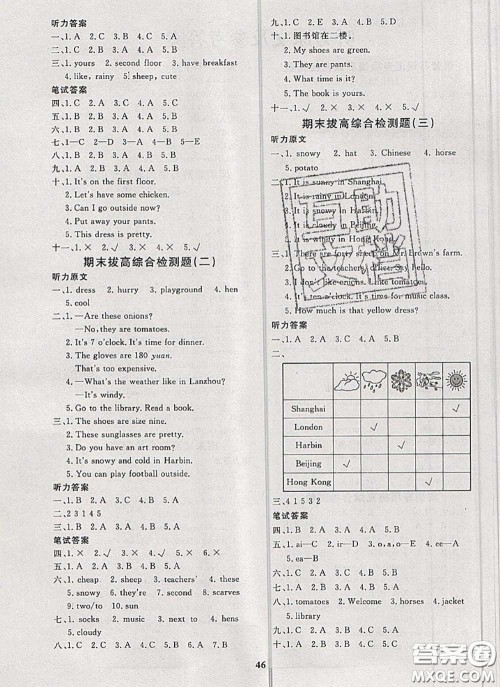 听力答案
一、1. C 2. A 3. C 4. A 5. A
三、1. yours 2. second floor 3. have breakfast
4. like, rainy 5. sheep, cute
笔试答案
四、1. C 2. A 3. A 4. C 5. B
五、1. B 2. A 3. A 4. B 5. B
七、1—D 2—A 3—C 4—B 5—E
九、1. C 2. A 3. B 4. C 5. A
十、1. It's on the first floor.
2. Let's have some chicken.
3. Can I go outside now?
4. Put away your pants.
5. This dress is pretty.
十一、1. × 2. × 3. √ 4. × 5. √
期末拔高综合检测题(二)
听力原文
一、1. dress 2. hurry 3. playground 4. hens
5. cool
二、1. —Are these onions?
—No, they are tomatoes.
2. It's 7 o'clock. It's time for dinner.
3. The gloves are 180 yuan.
That's too expensive.
4. —What's the weather like in Lanzhou?
—It's windy.
5. Go to the library. Read a book.
三、1. The shoes are size nine.
2. These sunglasses are pretty.
3. Do you have an art room?
4. It's snowy and cold in Harbin.
5. You can play football outside.
听力答案
一、1. B 2. A 3. A 4. B 5. B
二、2 3 1 4 5
三、1. B 2. A 3. B 4. A 5. A
笔试答案
四、1. × 2. √ 3. √ 4. √ 5. × 6. ×
五、1. B 2. C 3. A 4. C 5. B
六、1. cheap 2. sheep 3. teachers' 4. these
5. snowy 6. those 7. second 8. scarves
9. two/to 10. sun
七、1. socks 2. music 3. starts 4. hens
5. cloudy
八、1. B 2. A 3. C 4. A 5. A 6. B 7. B
九、1. C 2. A 3. B 4. D
十、1. 图书馆在二楼。
2. My shoes are green.
3. They are pants.
4. What time is it?
5. The book is yours.
十一、1. × 2. × 3. √ 4. × 5. √
期末拔高综合检测题(三)
听力原文
一、1. snowy 2. hat 3. Chinese 4. horse
5. potato
二、1. It is sunny in Shanghai.
2. It is rainy in London.
3. It is snowy in Harbin.
4. It is cloudy in Beijing.
5. It is windy in Hong Kong.
三、1. There are forty sheep on Mr Brown's farm.
2. Go to the teachers' office. Say hello.
3. I don't like onions. I like tomatoes.
4. It's ten o'clock. It's time for music class.
5. How much is that yellow dress?
听力答案
一、1. B 2. A 3. C 4. A 5. B
二、
Shanghai √
London √
Harbin √
Beijing √
Hong Kong √
三、4 1 5 3 2
笔试答案
四、1. B 2. A 3. A 4. B 5. B
五、1. ai—C 2. ir—D 3. o,a,o—E 4. ee—A
5. ea—B
六、1. B 2. A 3. C 4. A 5. A
七、1. C 2. B 3. B 4. A 5. B
八、1. tomatoes 2. Welcome 3. horses 4. jacket
5. library
九、1. B 2. A 3. B 4. A 5. A
46
互助文档
答案圈
MXQE.COM